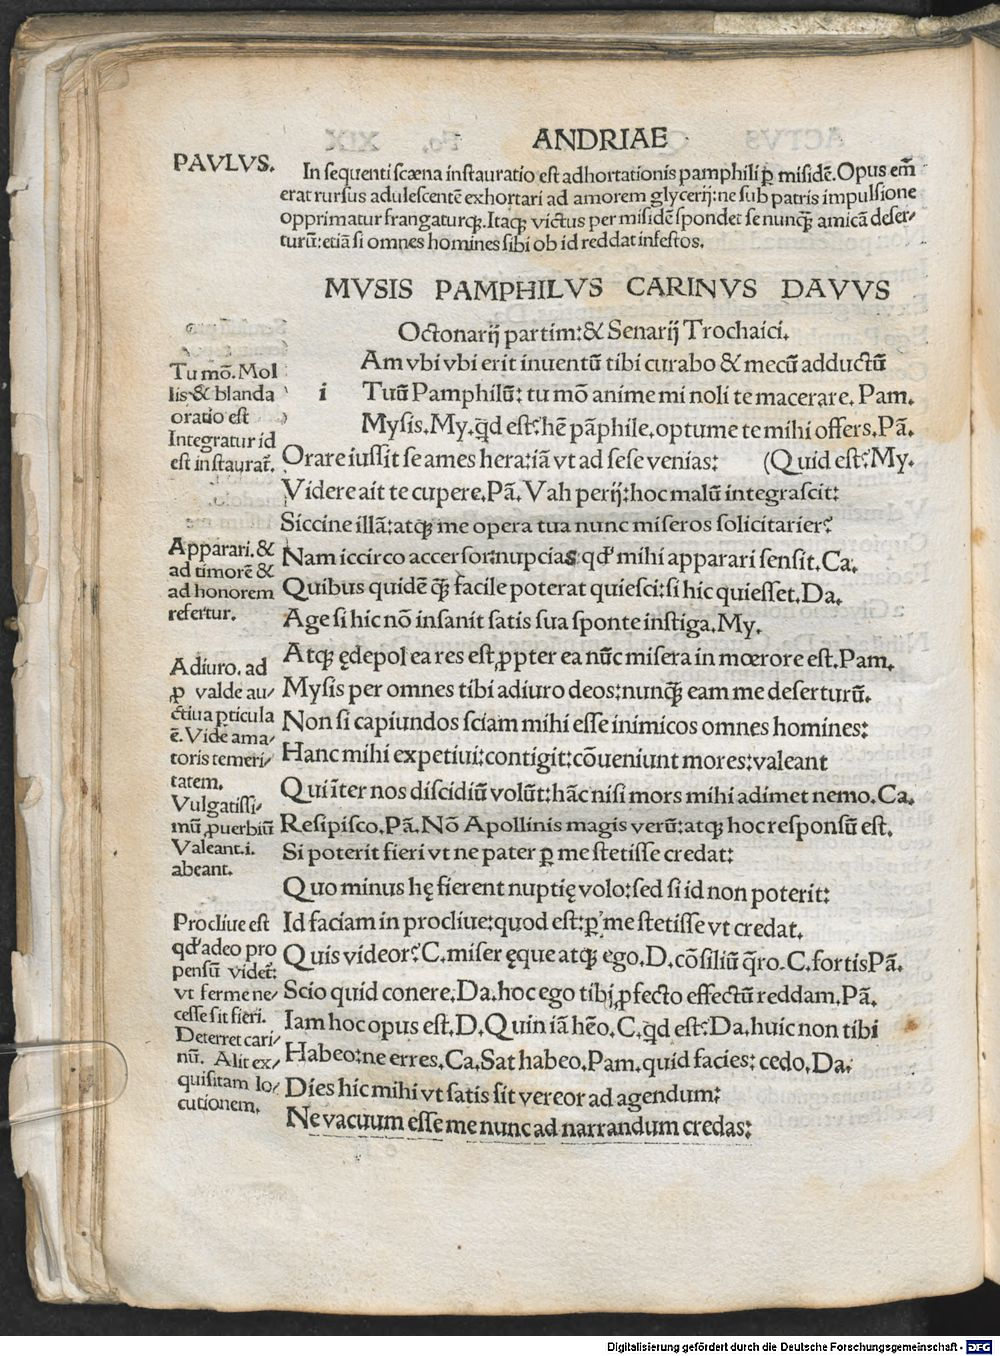 ANDRIAE
PAVLVS.
In sequenti scæna instauratio est adhortationis pamphili ꝑ misidē. Opus em̄
erat rursus adulescentē exhortari ad amorem glycerij: ne sub patris impulsione
opprimatur frangaturqꝫ. Itaqꝫ victus per misidē spondet se nunqꝫ̄ amicā deser⸗
turū: etiā si omnes homines sibi ob id reddat infestos.
MVSIS PAMPHILVS CARINVS DAVVS
Octonarij partim: & Senarij Trochaici.
i
Am vbi vbi erit inuentū tibi curabo & mecū adductū
Tuū Pamphilū: tu mō anime mi noli te macerare. Pam.
Mysis. My. q̄d est? hē pāphile, optume te mihi offers. Pā.
(Quid est? My.
Orare iussit se ames hera: iā vt ad sese venias:
Videre ait te cupere. Pā. Vah perij: hoc malū integrascit:
Siccine illā: atqꝫ me opera tua nunc miseros solicitarier?
Nam iccirco accersor: nupcias qd' mihi apparari sensit. Ca.
Quibus quidē qꝫ̄ facile poterat quiesci: si hic quiesset. Da.
Age si hic nō insanit satis sua sponte instiga. My.
Atqꝫ ędepol ea res est, ꝓpter ea nūc misera in mœrore est. Pam.
Mysis per omnes tibi adiuro deos: nunqꝫ̄ eam me deserturū.
Non si capiundos sciam mihi esse inimicos omnes homines:
Hanc mihi expetiui: contigit: cōueniunt mores: valeant
Qui īter nos discidiū volūt: hāc nisi mors mihi adimet nemo. Ca.
Resipisco. Pā. Nō Apollinis magis verū: atqꝫ hoc responsū est.
Si poterit fieri vt ne pater ꝑ me stetisse credat:
Quo minus hę fierent nuptię volo: sed si id non poterit:
Id faciam in procliue: quod est: ꝑ me stetisse vt credat.
Quis videor? C. miser ęque atqꝫ ego. D. cōsiliū q̄ro. C. fortis Pā.
Scio quid conere. Da. hoc ego tibi ꝓfecto effectū reddam. Pā.
Iam hoc opus est. D. Quin iā hēo. C. q̄d est? Da. huic non tibi
Habeo: ne erres. Ca. Sat habeo. Pam. quid facies: cedo. Da.
Dies hic mihi vt satis sit vereor ad agendum:
Ne vacuum esse me nunc ad narrandum credas:
Tu mō. Mol
lis & blanda
oratio est
Integratur id
est instaurat̄.
Apparari. &
ad timorē &
ad honorem
refertur.
Adiuro. ad
ꝓ valde au⸗
ctiua ꝑticula
ē. Vide ama⸗
toris temeri⸗
tatem.
Vulgatissi⸗
mū ꝓuerbiū
Valeant. i.
abeant.
Procliue est
qd' adeo pro
pensū videt̄:
vt ferme ne⸗
cesse sit fieri.
Deterret cari⸗
nū. Alit ex⸗
quisitam lo⸗
cutionem.
Digitalisierung gefördert durch die Deutsche Forschungsgemeinschaft - DFG